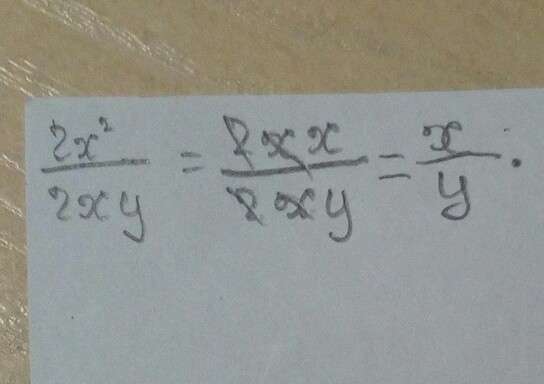 2x²/2xy = 2xx/2xy = x/y.